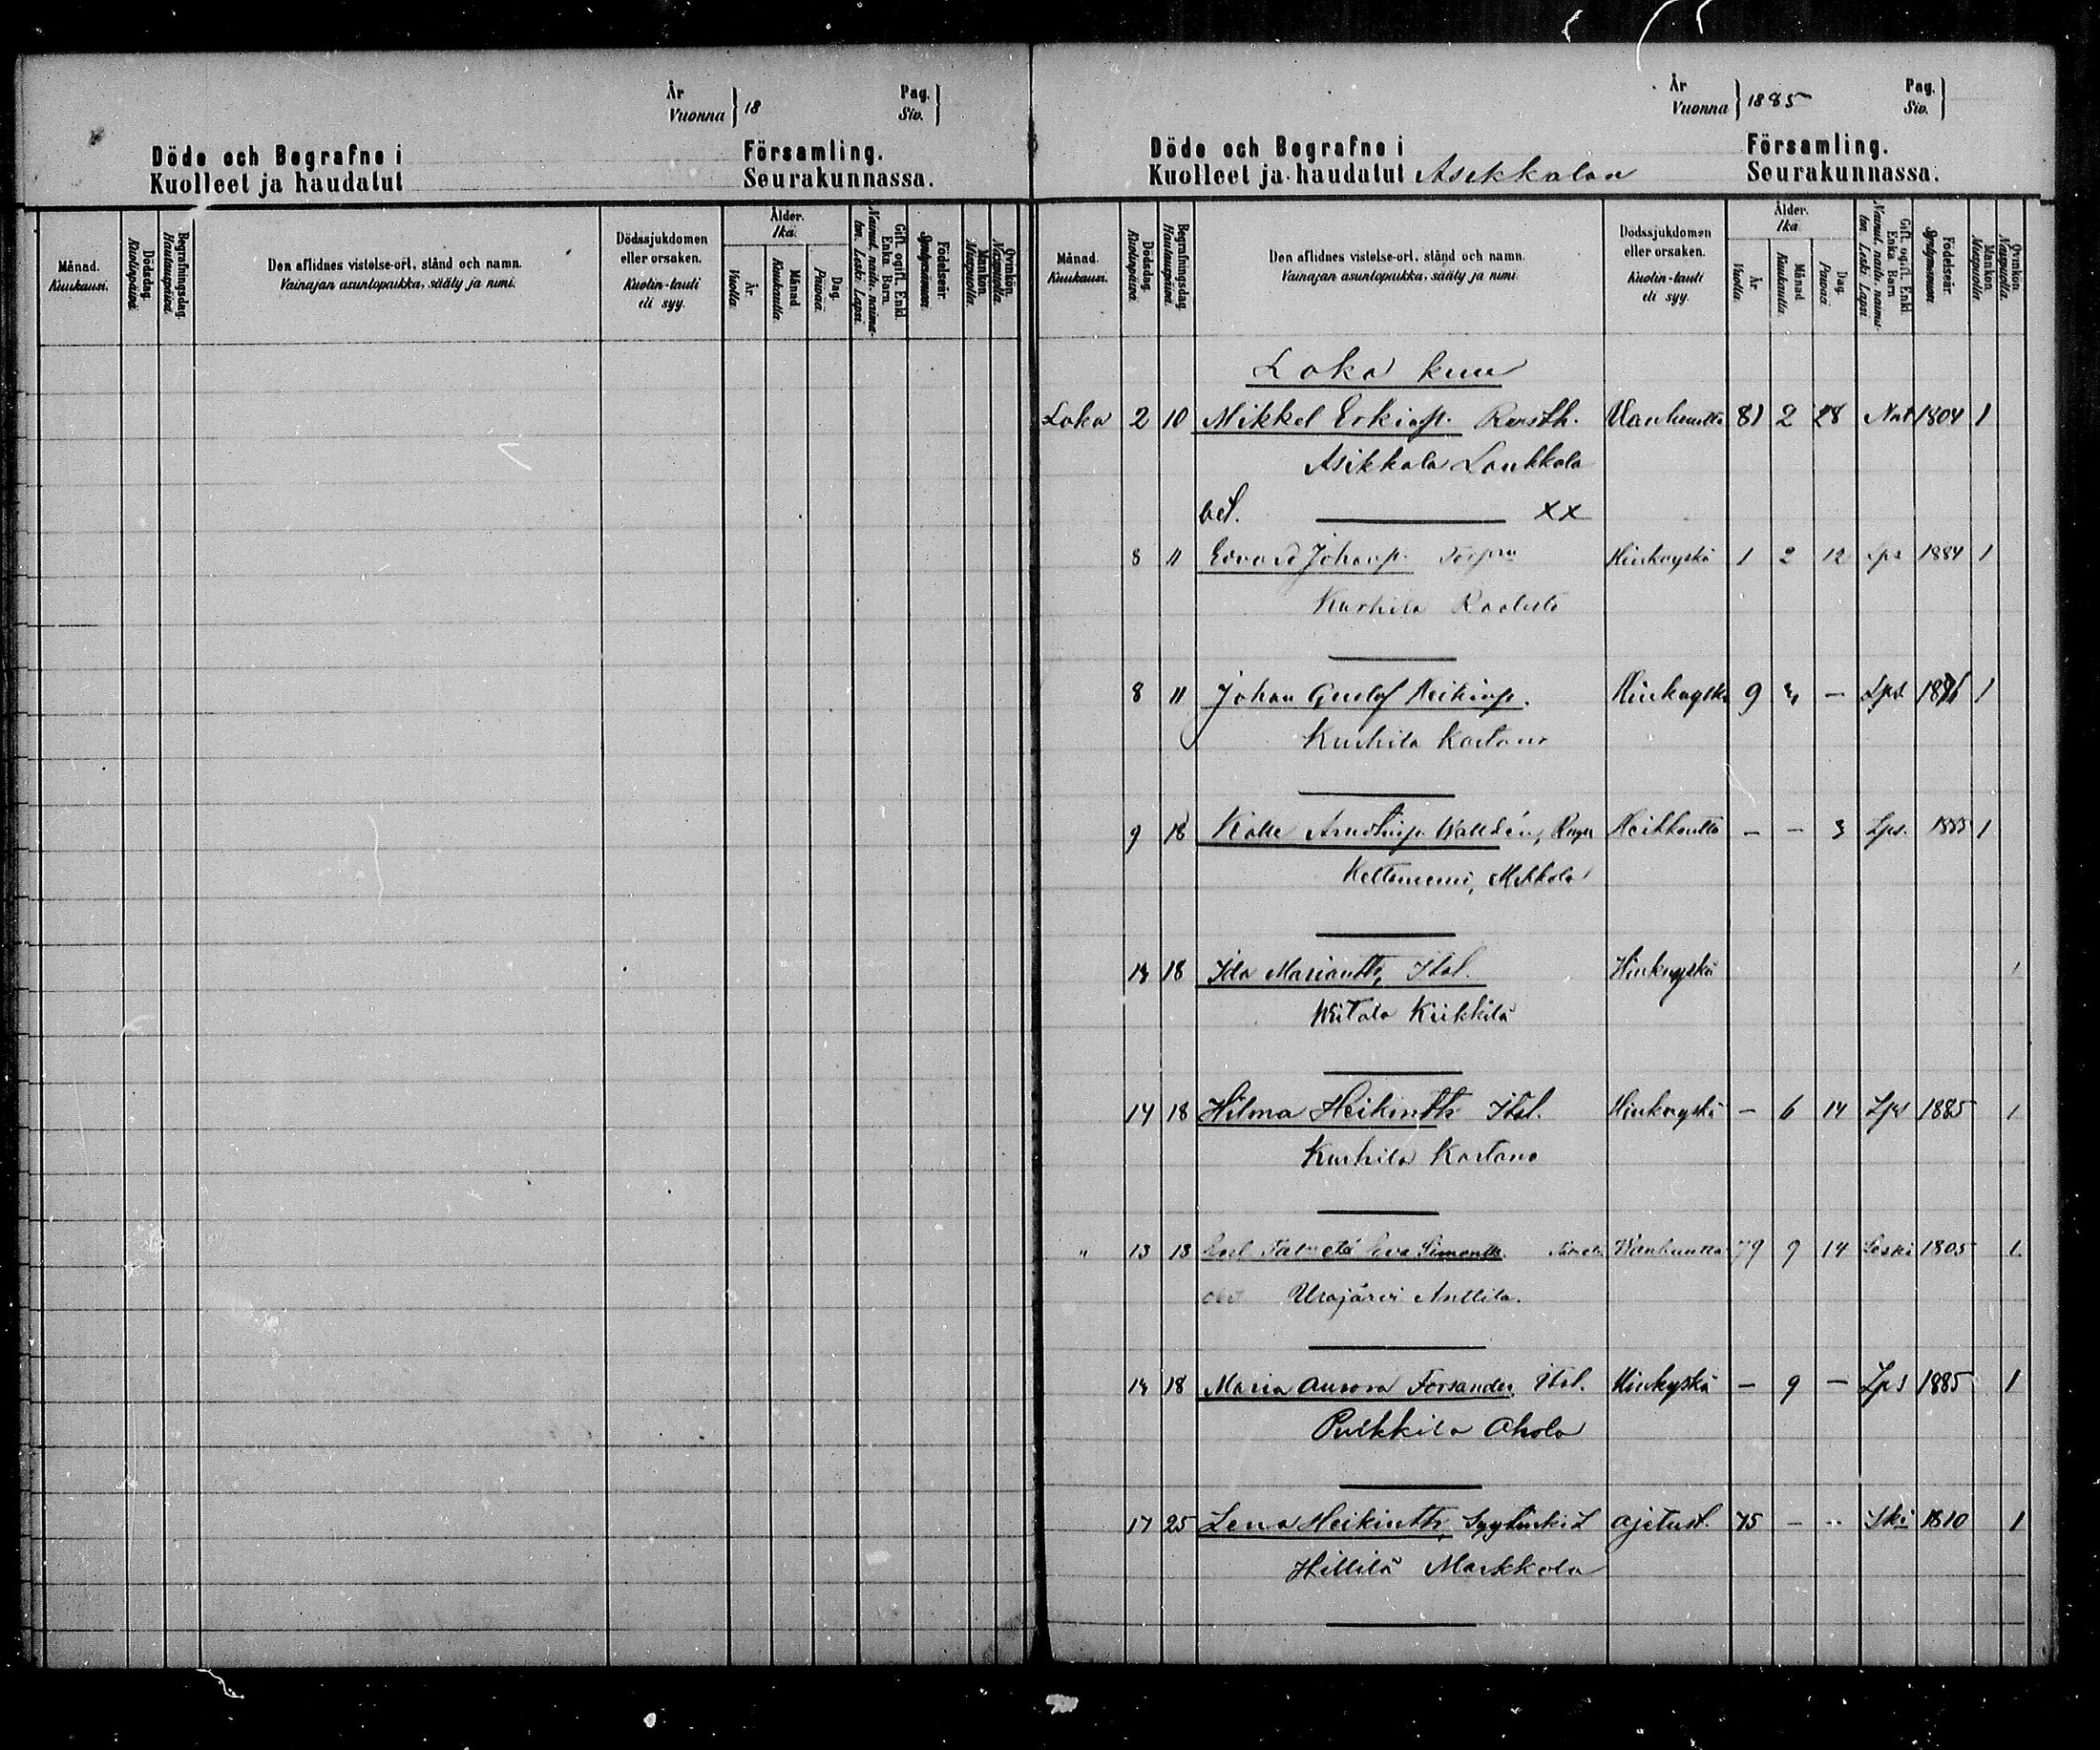 År
Vuonna } 18
Pag.
Siv. }
Döde och Begrafne i Församling.
Kuolleet ja haudatut Seurakunnassa.
Månad. Kuukausi.
Dödsdag. Kuolinpäivä.
Begrafningsdag. Hautauspäivä.
Den aflidnes vistelse-ort, stånd och namn.
Vainajan asuntopaikka, sääty ja nimi.
Dödssjukdomen eller orsaken.
Kuolin-tauti eli syy.
Ålder. Ikä.
År. Vuotta.
Månad. Kuukautta.
Dag. Päivää.
Gift, ogift, Enkl. Enka. Barn.
Nainut, naitu, naima-ton, Leski. Lapsi.
Födelseår. Syntymävuosi.
Mankön. Miespuolia.
Qvinkön. Naispuolia.
År
Vuonna } 1885
Pag.
Siv. }
Döde och Begrafne i Församling.
Kuolleet ja haudatut Asikkalan Seurakunnassa.
Månad. Kuukausi.
Dödsdag. Kuolinpäivä.
Begrafningsdag. Hautauspäivä.
Den aflidnes vistelse-ort, stånd och namn.
Vainajan asuntopaikka, sääty ja nimi.
Dödssjukdomen eller orsaken.
Kuolin-tauti eli syy.
Ålder. Ikä.
År. Vuotta.
Månad. Kuukautta.
Dag. Päivää.
Gift, ogift, Enkl. Enka. Barn
Nainut, naitu, naima-ton, Leski. Lapsi.
Födelseår. Syntymävuosi.
Mankön. Miespuolia.
Qvinkön. Naispuolia.
Loka kuu
Loka 2 10 Mikkel Erkinp. Vanhuutta 81 2 28 Nat 1804 1
Asikkala Laukkala
XX
8 11 Edvard Johanp. Hinkuyskä 1 2 12 Lps 1884 1
Kurhila
8 11 Johan Gustaf Heikinp. Hinkuyskä 9 – Lps 1876 1
Kurhila Kartano
9 18 Kalle Walldén, Heikkoutta – – 3 Lps. 1885 1
Mikkola
14 18 Ida Mariantr, Itsl. Hinkuyskä 1
Kirkkilä
14 18 Hilma Heikintr Itsl. Hinkuyskä – 6 14 Lps 1885 1
Kurhila Kartano
" 13 18 Eeva Simontr. Vanhuutta 79 9 14 Leski 1805 1
Urajärvi Anttila.
14 18 Maria Aurora Forsander Itsl. Hinkyskä – 9 – Lps 1885 1
Pulkkila Ahola
17 25 Lena Heikintr, Syytinki L ajetust. 75 – – Ski 1810 1
Hillilä Markkola